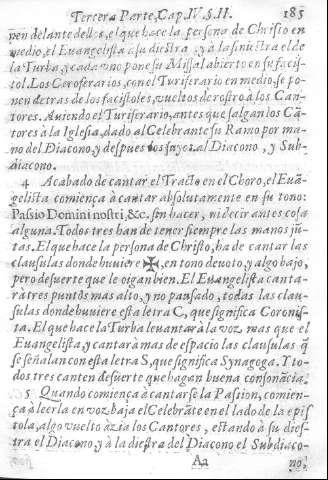 Tercera Parte, Cap. IV. §. II. 185
nen delante dellos, el que hace la persona de Christo en
medio, el Euangelista a su diestra, y à la siniestra el de
la Turba, y cada uno pone su Missal abierto en su facis-
tol. Los Ceroferarios, con el Turiferario en medio, se po-
nen detras de los facistoles, vueltos de rostro à los Can-
tores. Auiendo el Turiferario, antes que salgan los Cã-
tores à la Iglesia, dado al Celebrante su Ramo por ma-
no del Diacono, y despues los suyos al Diacono, y Sub-
diacono.
4 Acabado de cantar el Tracto en el Choro, el Euã-
gelista comiença à cantar absolutamente en su tono:
Passio Domini nostri, &c. sin hacer, ni decir antes cosa
alguna. Todos tres han de tener siempre las manos jũ-
tas. El que hace la persona de Christo, ha de cantar las
clausulas donde huuiere ✠, en tono deuoto, y algo bajo,
pero de suerte que le oigan bien. El Euangelista canta-
rà tres puntos mas alto, y no pausado, todas las clau-
sulas donde huuiere esta letra C, que significa Coronis-
ta. El que hace la Turba leuantarà la voz mas que el
Euangelista, y cantarà mas de espacio las clausulas q̃
se señalan con esta letra S, que significa Synagoga. Y to-
dos tres canten de suerte que hagan buena consonãcia.
5 Quando comiença à cantarse la Passion, comien-
ça à leerla en voz baja el Celebrãte en el lado de la epis
tola, algo vuelto àzia los Cantores, estando à su dies-
tra el Diacono, y à la diestra del Diacono el Subdiaco-
Aa no,